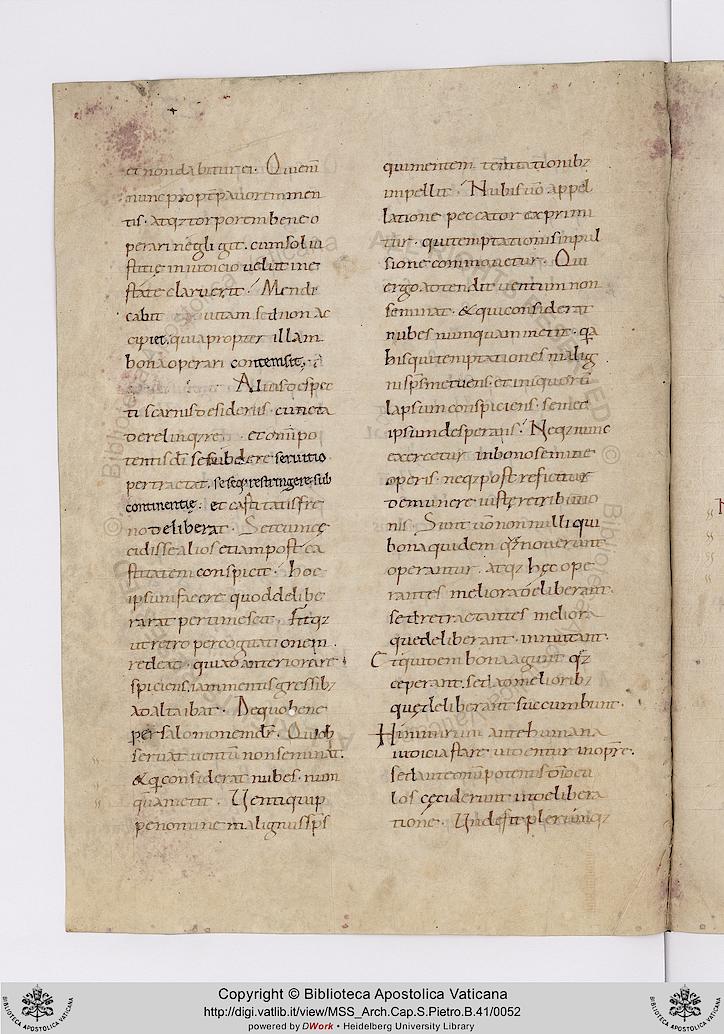 et non dabitur ei. Qui eni
nunc propt pauorem men
tis. atqz torporem bene o
perari negligit. cum sol iu
stitię in iudicio uel ut in ę
state claruerit. Mendi
cabit uitam sed non ac
cipiet. quia propter illam
bona operari contemsit,
Alius despec
tis carnis desideriis. cuncta
derelinqre et omipo
tentis di se subdere seruitio
pertractat. seseq; restringere sub
continentię. et castitatis fre
no deliberat. Set cum cę
cidisse alios etiam post ca
stitatem conspicit. hoc
ipsum facere quod delibe
rarat pertimescit. Fitqz
ut retro per cogitationem
redeat. qui ad anteriora re
spiciens. iam mentis gressibz
ad alta ibat. De quo bene
per salomonem dr. Qui ob
seruat uentu non seminat.
& q considerat nubes. num
qua metit. Uenti quip
pe nomine malignus sps
qui mentem temtationibz
impellit. Nubis uo appel
latione peccator exprimi
tur. qui temptationis inpul
sione commouetur. Qui
ergo adtendit uentum non
seminat. & qui considerat
nubes numquam metit. qa
hi qui temptationes malig
ni sps metuens. et in quoru
lapsum conspiciens. semet
ipsum desperans. Neqz nunc
exercetur in bono semine
operis. neqz post reficitur
de munere iustę retributio
nis Sunt uo non nulli qui
bona quidem que nouerunt
operantur. atqz hęc ope
rantes meliora deliberant.
sed retractantes meliora
que deliberant. inmutant.
Et quidem bona agunt que
ceperant. sed a melioribz
quę deliberant succumbunt.
Hi nimirum ante humana
iudicia stare uidentur in opre.
sed ante omipotentis di ocu
los cęciderunt in delibera
tione. Unde fit plerumqz
Copyright © Biblioteca Apostolica Vaticana
http://digi.vatlib.it/view/MSS_Arch.Cap.S.Pietro.B.41/0052
powered by DWork • Heidelberg University Library